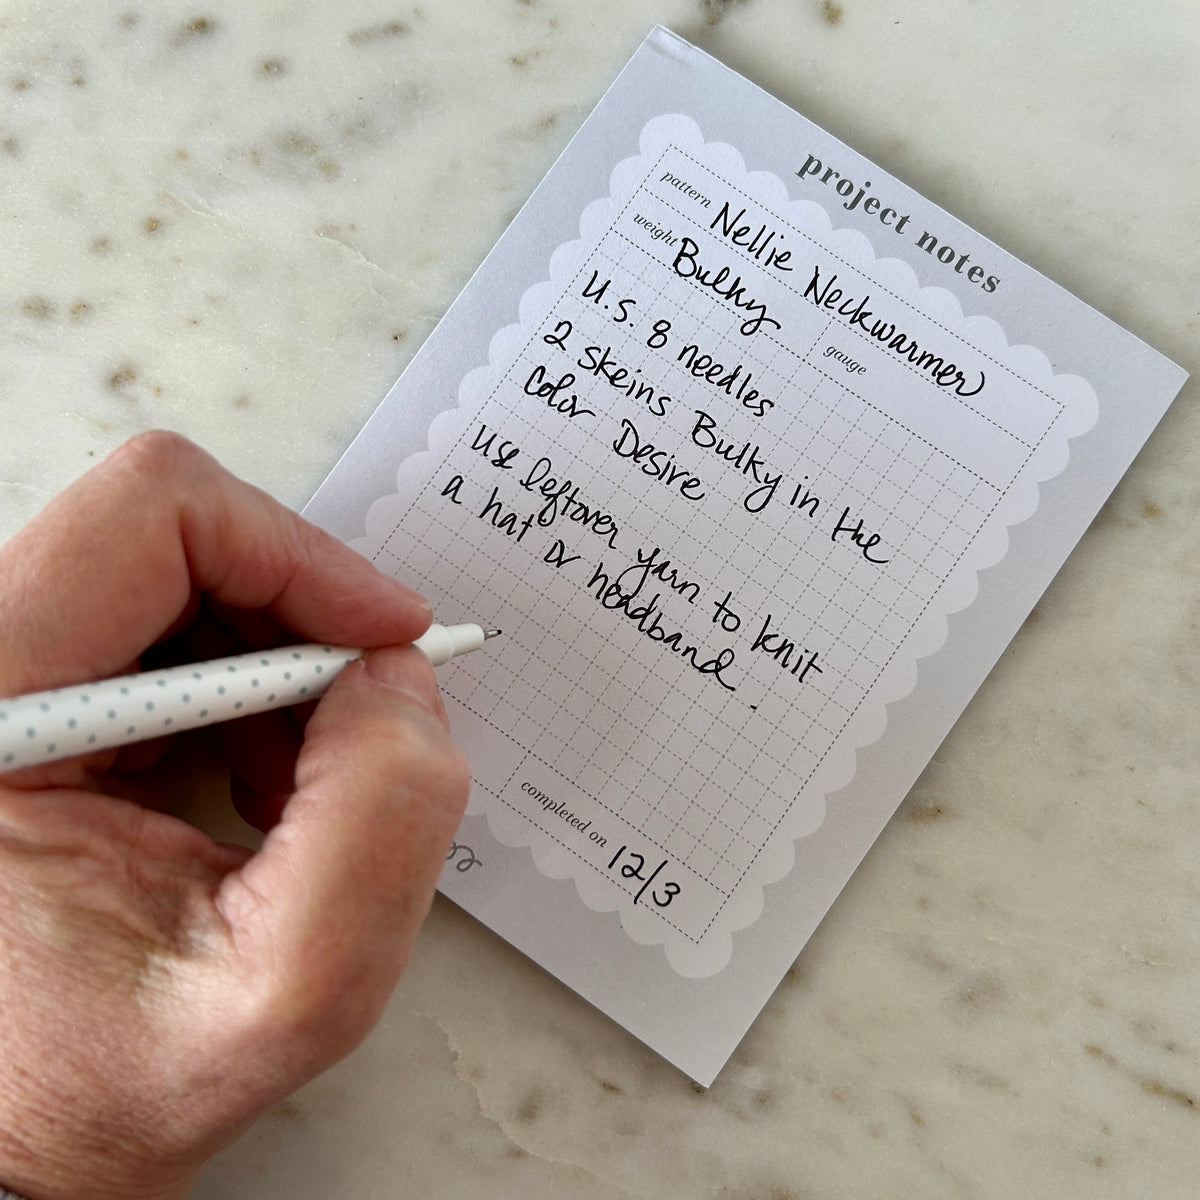 project notes
pattern Nellie Neckwarmer
weight Bulky gauge
U.S. 8 needles
2 skeins Bulky in the
color Desire
Use leftover yarn to knit
a hat or headband.
completed on 12/3